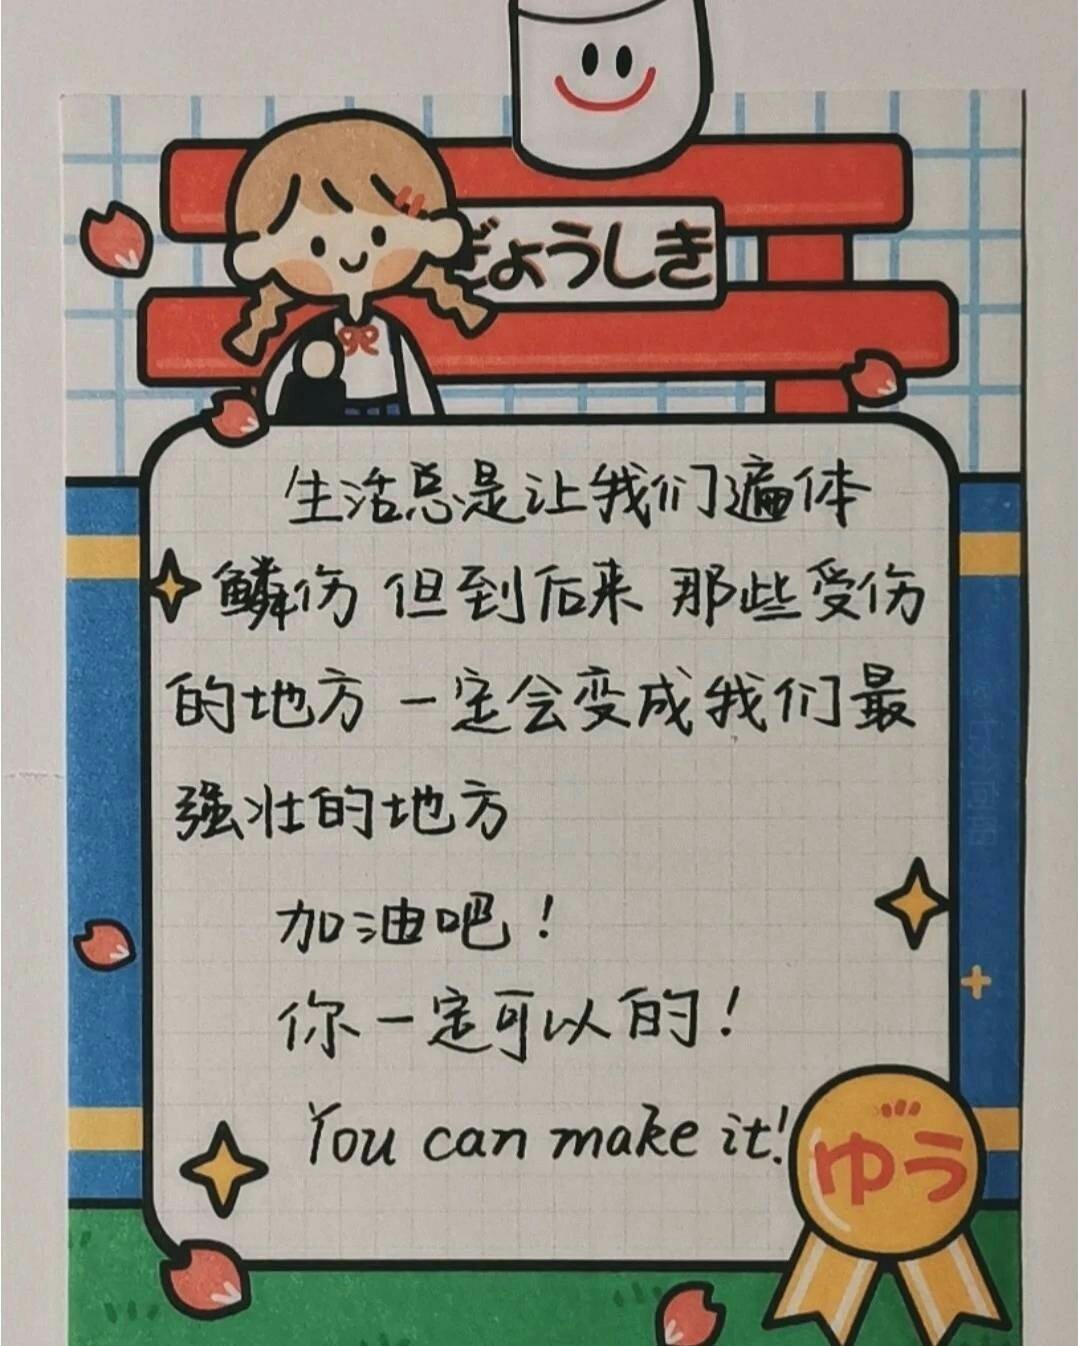 ぎょうしき
生活总是让我们遍体
鳞伤 但到后来 那些受伤
的地方 一定会变成我们最
强壮的地方
加油吧！
你一定可以的！
You can make it!
ゆう